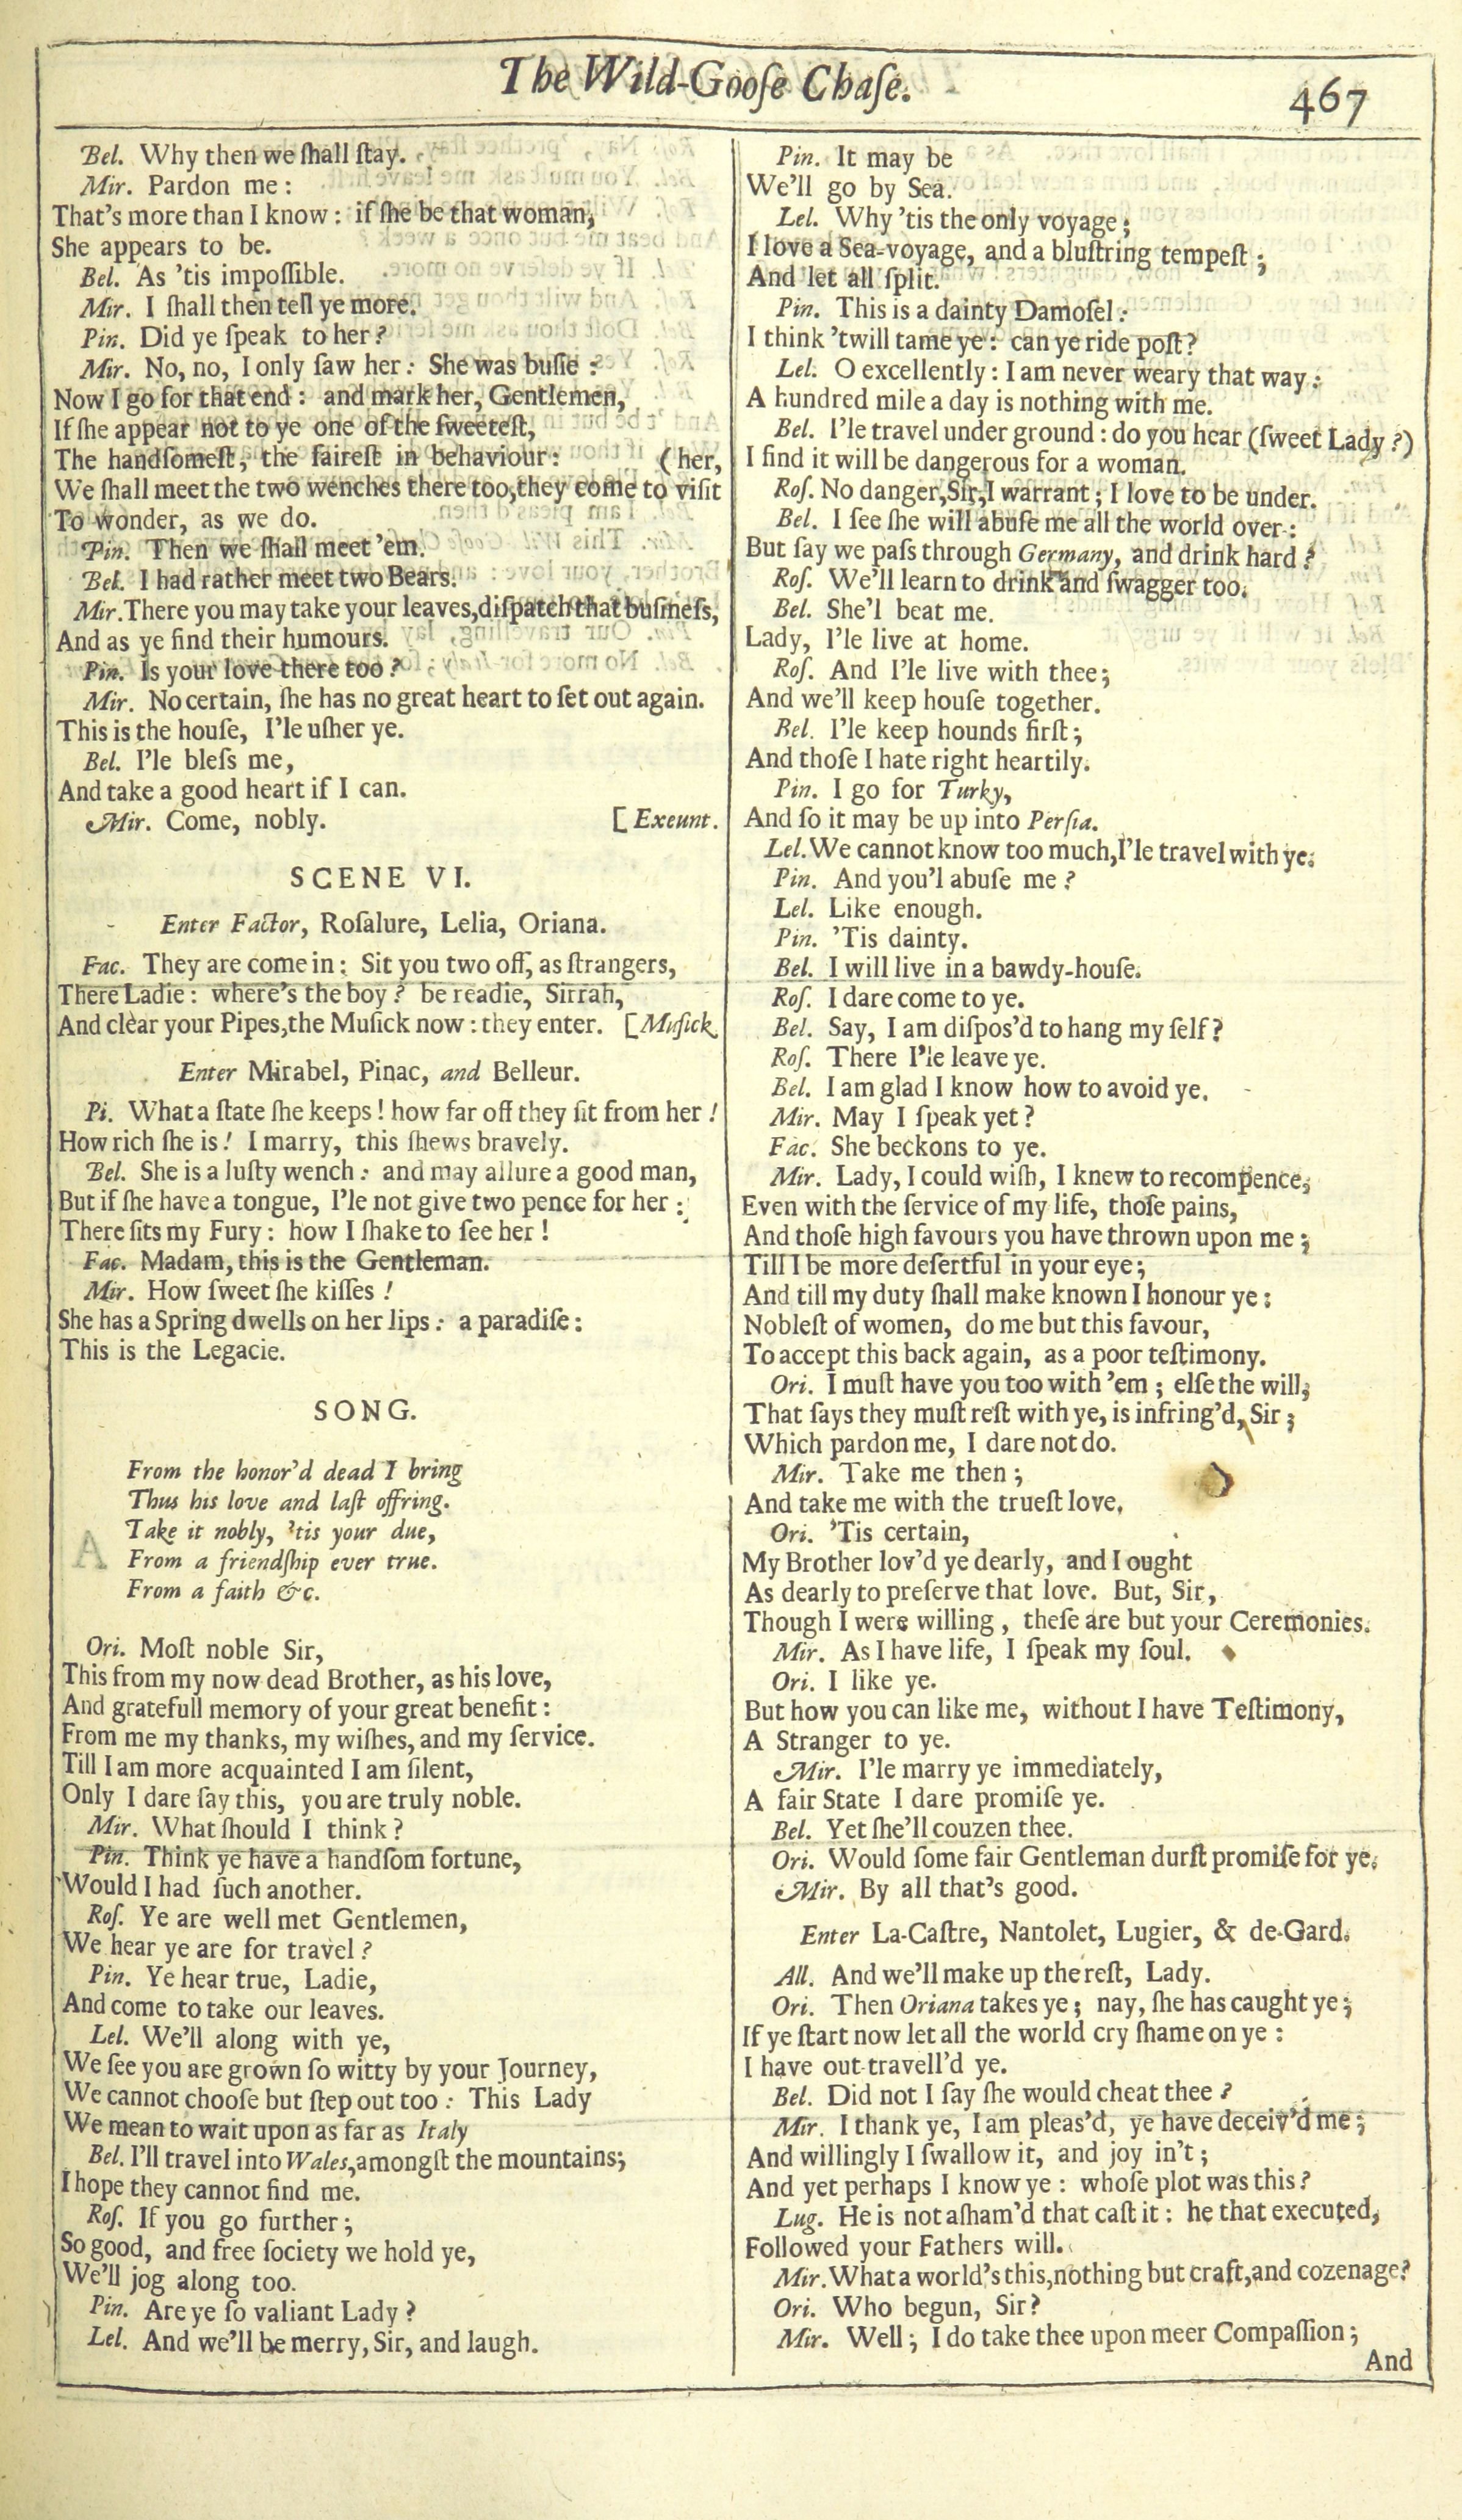 The Wild-Gooſe Chaſe.
467
Bel. Why then we ſhall ſtay.
Mir. Pardon me:
That's more than I know: if ſhe be that woman,
She appears to be.
Bel. As 'tis impoſſible.
Mir. I ſhall then tell ye more.
Pin. Did ye ſpeak to her?
Mir. No, no, I only ſaw her: She was buſie:
Now I go for that end: and mark her, Gentlemen,
If ſhe appear not to ye one of the ſweeteſt,
The handſomeſt, the faireſt in behaviour: (her,
We ſhall meet the two wenches there too, they come to viſit
To wonder, as we do.
Pin. Then we ſhall meet 'em.
Bel. I had rather meet two Bears.
Mir. There you may take your leaves, diſpatch that buſineſs,
And as ye find their humours.
Pin. Is your love there too?
Mir. No certain, ſhe has no great heart to ſet out again.
This is the houſe, I'le uſher ye.
Bel. I'le bleſs me,
And take a good heart if I can.
Mir. Come, nobly. [Exeunt.
SCENE VI.
Enter Factor, Roſalure, Lelia, Oriana.
Fac. They are come in: Sit you two off, as ſtrangers,
There Ladie: where's the boy? be readie, Sirrah,
And clear your Pipes, the Muſick now: they enter. [Muſick
Enter Mirabel, Pinac, and Belleur.
Pi. What a ſtate ſhe keeps! how far off they ſit from her!
How rich ſhe is! I marry, this ſhews bravely.
Bel. She is a luſty wench: and may allure a good man,
But if ſhe have a tongue, I'le not give two pence for her:
There ſits my Fury: how I ſhake to ſee her!
Fac. Madam, this is the Gentleman.
Mir. How ſweet ſhe kiſſes!
She has a Spring dwells on her lips: a paradiſe:
This is the Legacie.
SONG.
From the honor'd dead I bring
Thus his love and laſt offring.
Take it nobly, 'tis your due,
From a friendſhip ever true.
From a faith &c.
Ori. Moſt noble Sir,
This from my now dead Brother, as his love,
And gratefull memory of your great benefit:
From me my thanks, my wiſhes, and my ſervice.
Till I am more acquainted I am ſilent,
Only I dare ſay this, you are truly noble.
Mir. What ſhould I think?
Pin. Think ye have a handſom fortune,
Would I had ſuch another.
Roſ. Ye are well met Gentlemen,
We hear ye are for travel?
Pin. Ye hear true, Ladie,
And come to take our leaves.
Lel. We'll along with ye,
We ſee you are grown ſo witty by your Journey,
We cannot chooſe but ſtep out too: This Lady
We mean to wait upon as far as Italy
Bel. I'll travel into Wales, amongſt the mountains;
I hope they cannot find me.
Roſ. If you go further;
So good, and free ſociety we hold ye,
We'll jog along too.
Pin. Are ye ſo valiant Lady?
Lel. And we'll be merry, Sir, and laugh.
Pin. It may be
We'll go by Sea.
Lel. Why 'tis the only voyage;
I love a Sea-voyage, and a bluſtring tempeſt;
And let all ſplit.
Pin. This is a dainty Damoſel:
I think 'twill tame ye: can ye ride poſt?
Lel. O excellently: I am never weary that way:
A hundred mile a day is nothing with me.
Bel. I'le travel under ground: do you hear (ſweet Lady?)
I find it will be dangerous for a woman.
Roſ. No danger, Sir, I warrant; I love to be under.
Bel. I ſee ſhe will abuſe me all the world over:
But ſay we paſs through Germany, and drink hard?
Roſ. We'll learn to drink and ſwagger too.
Bel. She'l beat me.
Lady, I'le live at home.
Roſ. And I'le live with thee;
And we'll keep houſe together.
Bel. I'le keep hounds firſt;
And thoſe I hate right heartily.
Pin. I go for Turky,
And ſo it may be up into Perſia.
Lel. We cannot know too much, I'le travel with ye.
Pin. And you'l abuſe me?
Lel. Like enough.
Pin. 'Tis dainty.
Bel. I will live in a bawdy-houſe.
Roſ. I dare come to ye.
Bel. Say, I am diſpos'd to hang my ſelf?
Roſ. There I'le leave ye.
Bel. I am glad I know how to avoid ye.
Mir. May I ſpeak yet?
Fac. She beckons to ye.
Mir. Lady, I could wiſh, I knew to recompence,
Even with the ſervice of my life, thoſe pains,
And thoſe high favours you have thrown upon me;
Till I be more deſertful in your eye;
And till my duty ſhall make known I honour ye:
Nobleſt of women, do me but this favour,
To accept this back again, as a poor teſtimony.
Ori. I muſt have you too with 'em; elſe the will,
That ſays they muſt reſt with ye, is infring'd, Sir;
Which pardon me, I dare not do.
Mir. Take me then;
And take me with the trueſt love.
Ori. 'Tis certain,
My Brother lov'd ye dearly, and I ought
As dearly to preſerve that love. But, Sir,
Though I were willing, theſe are but your Ceremonies.
Mir. As I have life, I ſpeak my ſoul.
Ori. I like ye.
But how you can like me, without I have Teſtimony,
A Stranger to ye.
Mir. I'le marry ye immediately,
A fair State I dare promiſe ye.
Bel. Yet ſhe'll couzen thee.
Ori. Would ſome fair Gentleman durſt promiſe for ye.
Mir. By all that's good.
Enter La-Caſtre, Nantolet, Lugier, & de-Gard.
All. And we'll make up the reſt, Lady.
Ori. Then Oriana takes ye; nay, ſhe has caught ye;
If ye ſtart now let all the world cry ſhame on ye:
I have out-travell'd ye.
Bel. Did not I ſay ſhe would cheat thee?
Mir. I thank ye, I am pleas'd, ye have deceiv'd me;
And willingly I ſwallow it, and joy in't;
And yet perhaps I know ye: whoſe plot was this?
Lug. He is not aſham'd that caſt it: he that executed,
Followed your Fathers will.
Mir. What a world's this, nothing but craft, and cozenage?
Ori. Who begun, Sir?
Mir. Well; I do take thee upon meer Compaſſion;
And